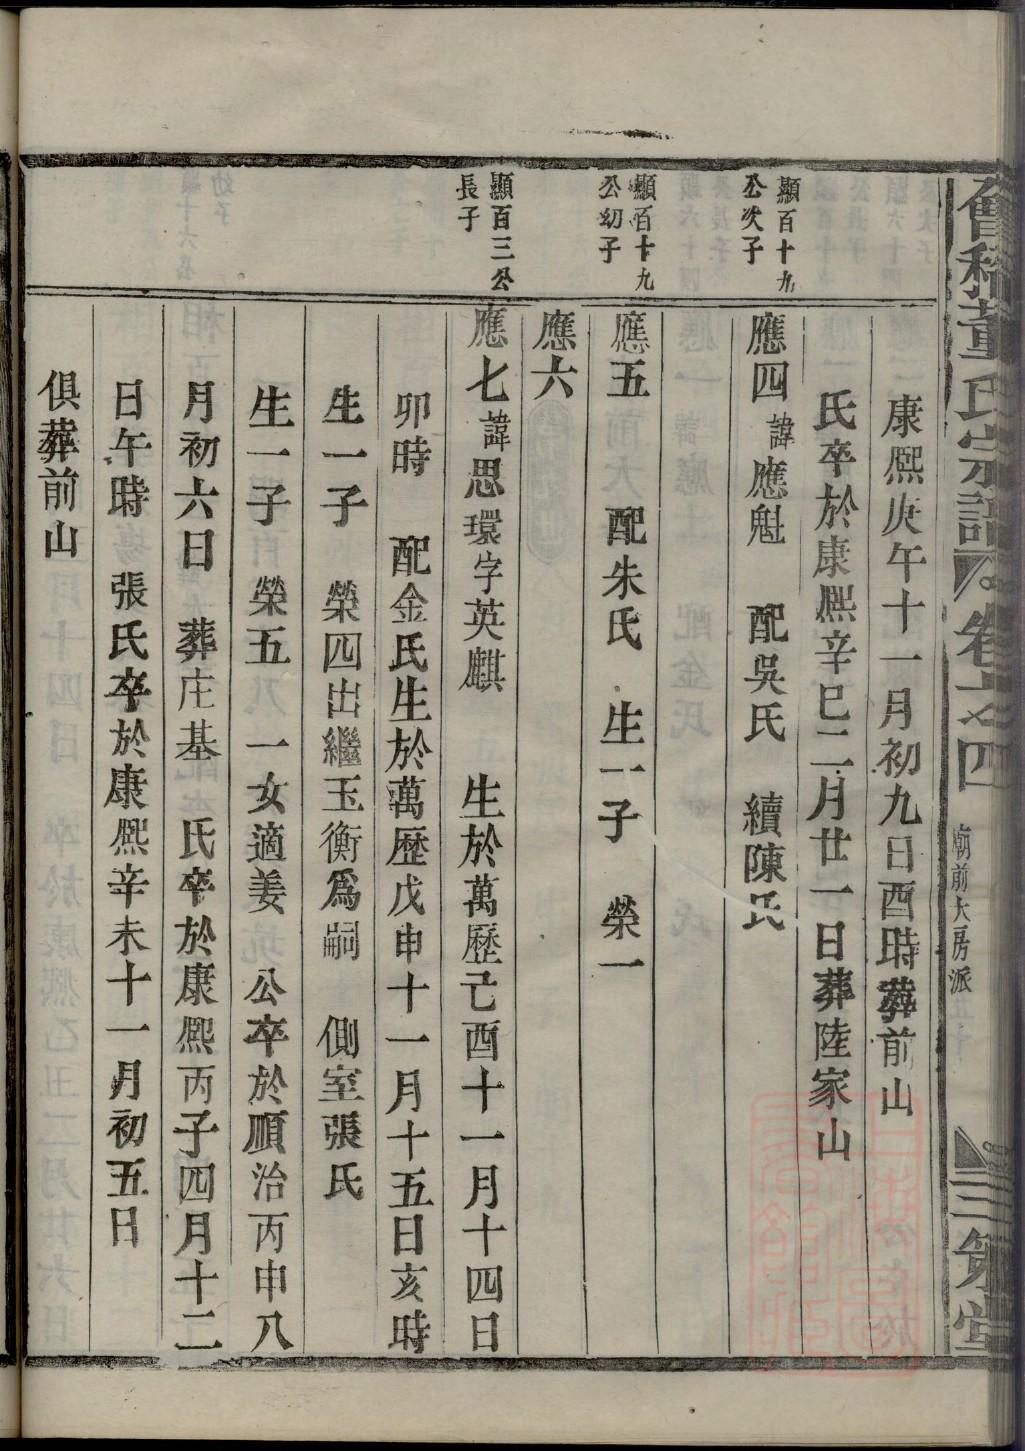 會稽董氏宗譜 卷十之四 廟前大房派 三策堂
康熙庚午十一月初九日酉時葬前山
氏卒於康熙辛巳二月廿一日葬陸家山
顯百十九公次子
應四諱應魁 配吳氏 續陳氏
顯百十九公幼子
應五 配朱氏 生一子 榮一
應六
顯百三公長子
應七諱思環字英麒 生於萬歷己酉十一月十四日
卯時 配金氏生於萬歷戊申十一月十五日亥時
生一子 榮四出繼玉衡爲嗣 側室張氏
生一子 榮五 一女適姜 公卒於順治丙申八
月初六日 葬庄基 氏卒於康熙丙子四月十二
日午時 張氏卒於康熙辛未十一月初五日
俱葬前山